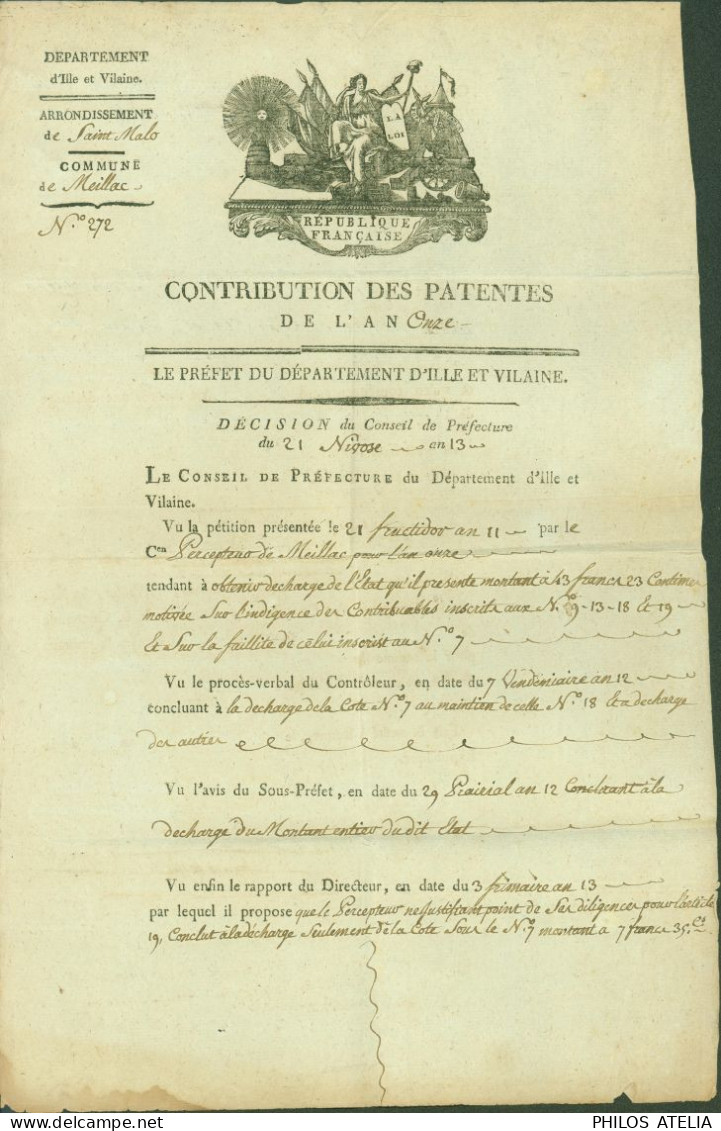 DEPARTEMENT
d'Ille et Vilaine.
ARRONDISSEMENT
de Saint Malo
COMMUNE
de Meillac
N.o 272
LA
LOI
RÉPUBLIQUE
FRANÇAISE
CONTRIBUTION DES PATENTES
DE L'AN Onze
LE PRÉFET DU DÉPARTEMENT D'ILLE ET VILAINE.
DÉCISION du Conseil de Préfecture
du 21 Nivose an 13
LE CONSEIL DE PRÉFECTURE du Département d'Ille et
Vilaine.
Vu la pétition présentée le 21 fructidor an 11 par le
Cen Percepteur de Meillac pour l'an onze
tendant à obtenir decharge de l'Etat qu'il presente montant à 43 francs 23 Centimes
motivée Sur l'indigence des Contribuables inscrits aux N.os 9-13-18 Et 19
Et Sur la faillite de celui inscrit au N.o 7
Vu le procès-verbal du Contrôleur, en date du 7 Vendémiaire an 12
concluant à la decharge de la Cote N.o 7 au maintien de celle N.o 18 Et a decharge
des autres
Vu l'avis du Sous-Préfet, en date du 29 Prairial an 12 Concluant à la
decharge du Montant entier du dit Etat
Vu enfin le rapport du Directeur, en date du 3 frimaire an 13
par lequel il propose que le Percepteur ne justifiant point de Ses diligences pour l'article
19, Conclut à la décharge Seulement de la Cote Sous le N.o 7 montant a 7 francs 35 Cs
PHILOS ATELIA